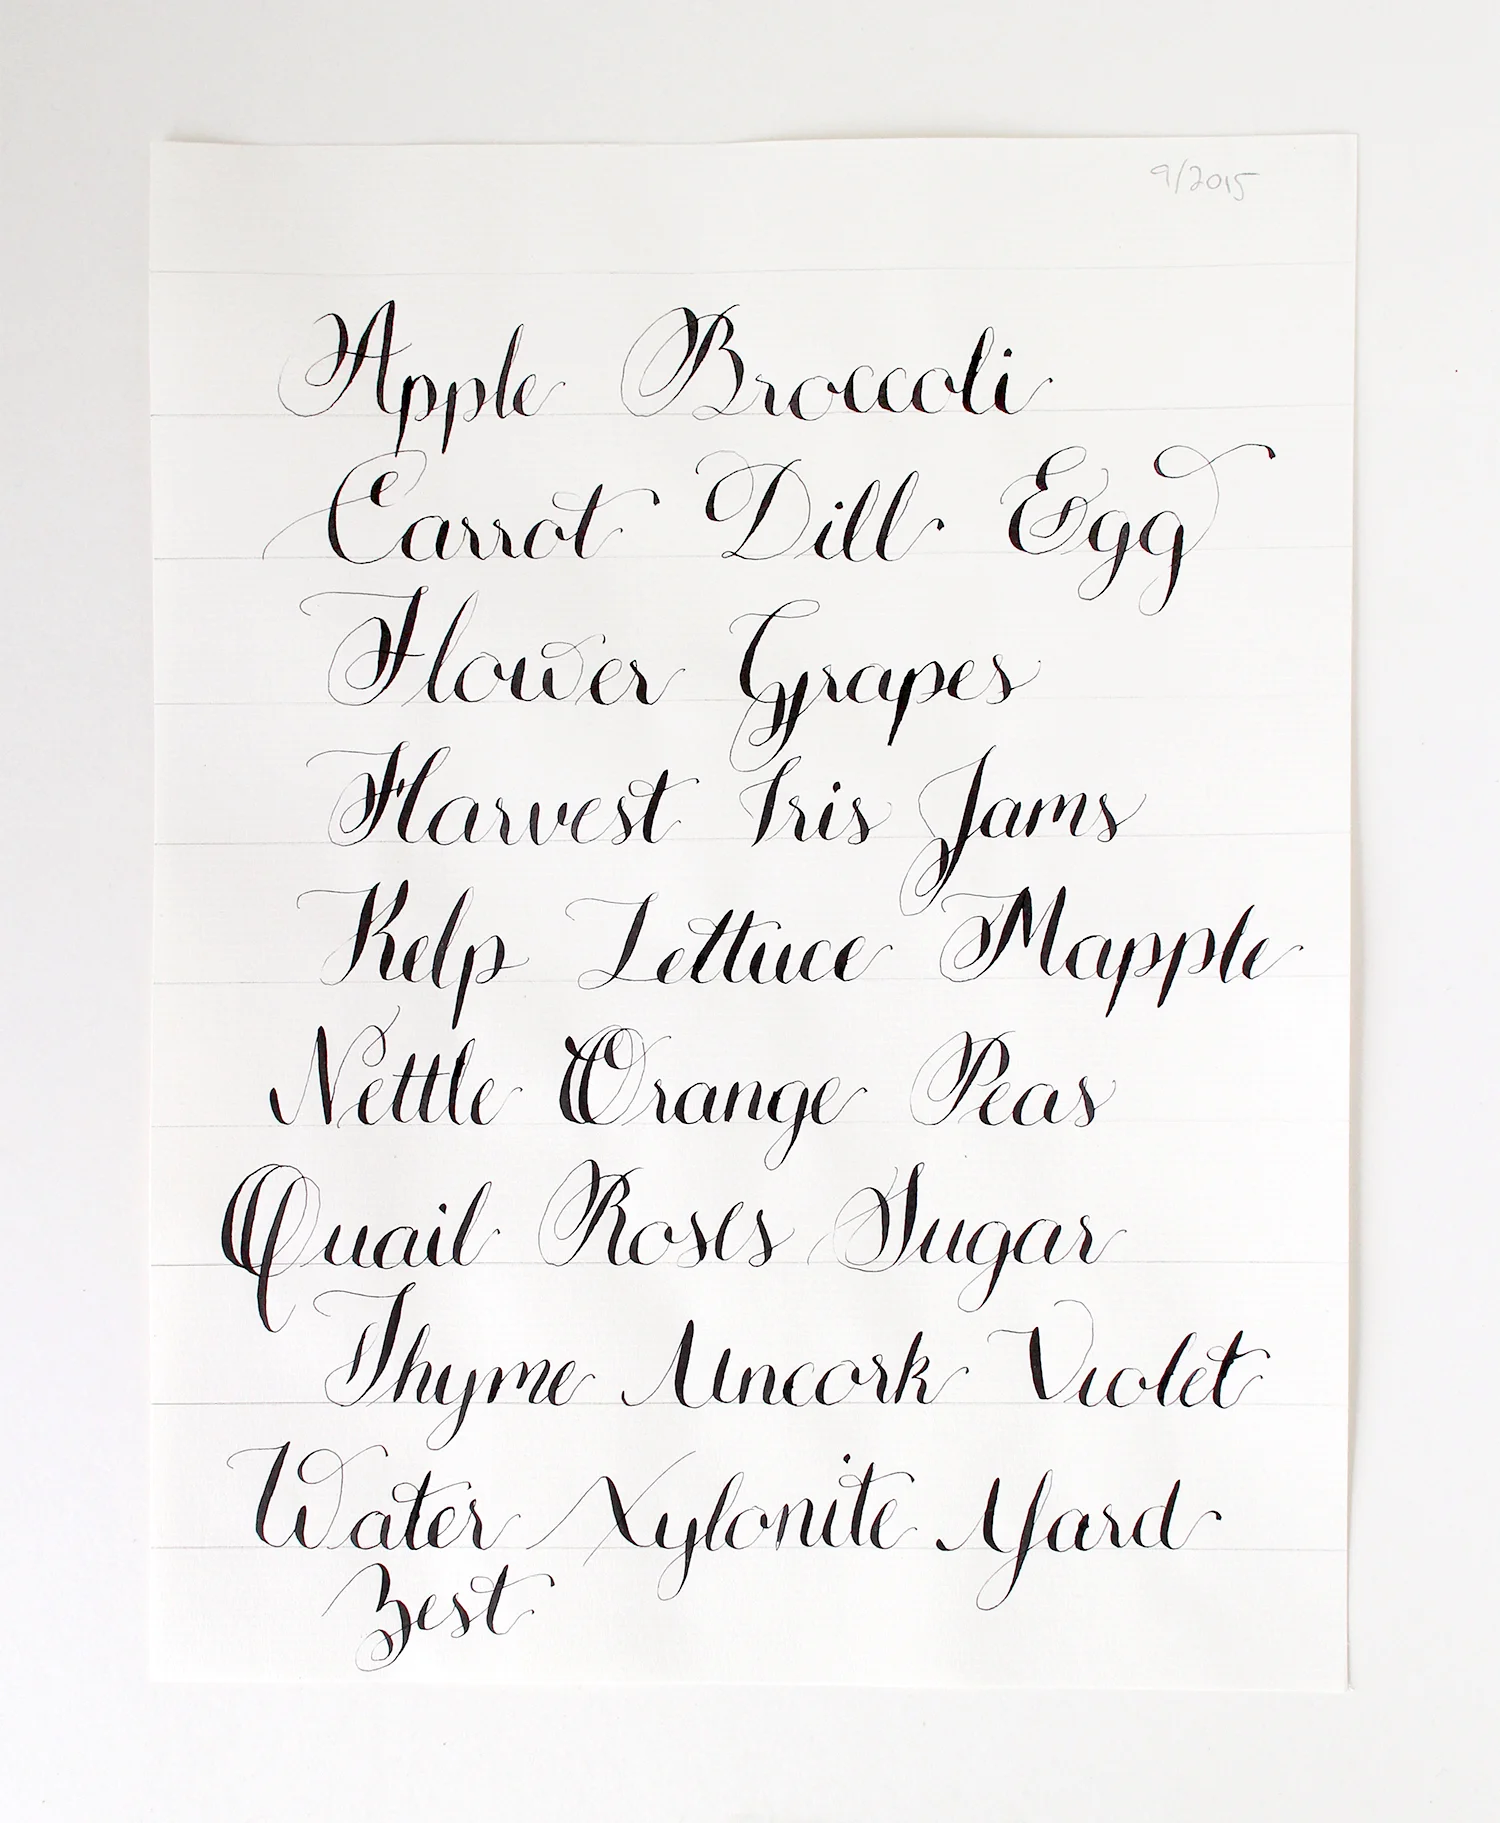 9/2015
Apple Broccoli
Carrot Dill Egg
Flower Grapes
Harvest Iris Jams
Kelp Lettuce Mapple
Nettle Orange Peas
Quail Roses Sugar
Thyme Uncork Violet
Water Xylonite Yard
Zest